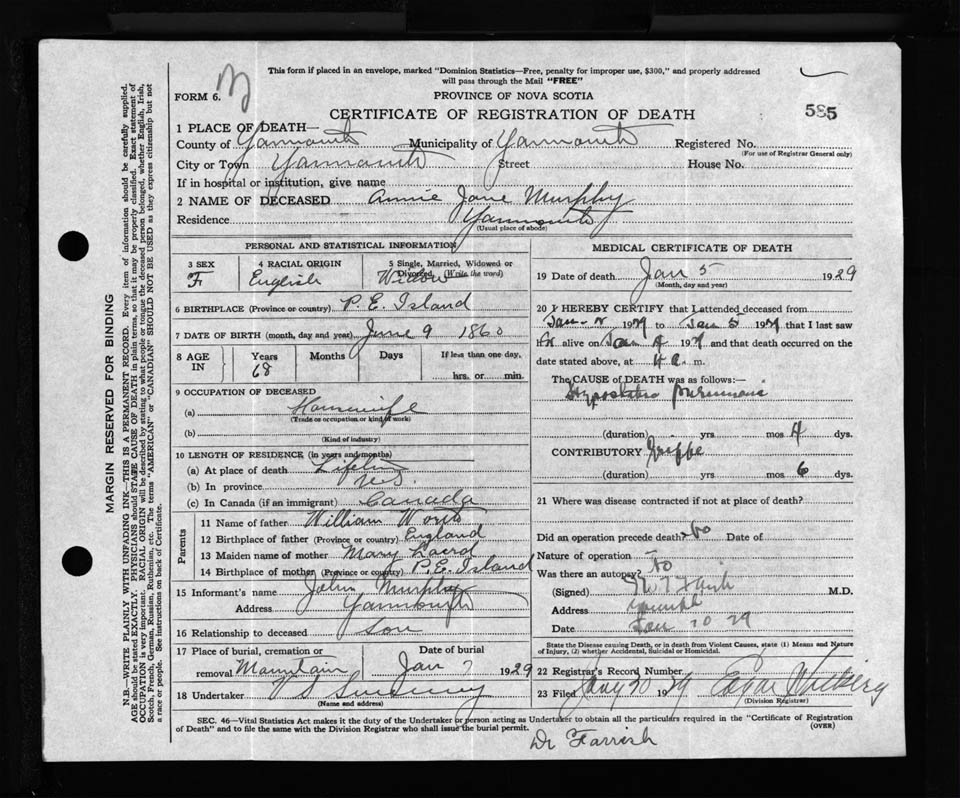 This form if placed in an envelope, marked "Dominion Statistics—Free, penalty for improper use, $300," and properly addressed
will pass through the Mail "FREE"
FORM 6.
PROVINCE OF NOVA SCOTIA
585
CERTIFICATE OF REGISTRATION OF DEATH
1 PLACE OF DEATH—
County of Yarmouth Municipality of Yarmouth Registered No.
(For use of Registrar General only)
City or Town Yarmouth Street House No.
If in hospital or institution, give name
2 NAME OF DECEASED Annie Jane Murphy
Residence Yarmouth
(Usual place of abode)
PERSONAL AND STATISTICAL INFORMATION
3 SEX 4 RACIAL ORIGIN 5 Single, Married, Widowed or
Divorced (Write the word)
F English Widow
6 BIRTHPLACE (Province or country) P. E. Island
7 DATE OF BIRTH (month, day and year) June 9 1860
8 AGE IN Years Months Days If less than one day,
68 hrs. or min.
9 OCCUPATION OF DECEASED
(a) Housewife
(Trade or occupation or kind of work)
(b)
(Kind of industry)
10 LENGTH OF RESIDENCE (in years and months)
(a) At place of death Lifetime
(b) In province N.S.
(c) In Canada (if an immigrant) Canada
Parents
11 Name of father William Worth
12 Birthplace of father (Province or country) England
13 Maiden name of mother Mary Laird
14 Birthplace of mother (Province or country) P. E. Island
15 Informant's name John Murphy
Address Yarmouth
16 Relationship to deceased Son
17 Place of burial, cremation or Date of burial
removal Mountain Jan 7 1929
18 Undertaker V S Sweeney
(Name and address)
MEDICAL CERTIFICATE OF DEATH
19 Date of death Jan 5 1929
(Month, day and year)
20 I HEREBY CERTIFY that I attended deceased from
Jan 2 1929 to Jan 5 1929 that I last saw
alive on Jan 4 1929 and that death occurred on the
date stated above, at 4 a. m.
The CAUSE OF DEATH was as follows:—
Hypostatic pneumonia
(duration) yrs mos 4 dys.
CONTRIBUTORY Grippe
(duration) yrs mos 6 dys.
21 Where was disease contracted if not at place of death?
Did an operation precede death? No Date of
Nature of operation
Was there an autopsy? No
(Signed) M.D.
Address Yarmouth
Date Jan 29
State the Disease causing Death, or in death from Violent Causes, state (1) Means and Nature
of Injury, (2) whether Accidental, Suicidal or Homicidal.
22 Registrar's Record Number
23 Filed Jany 20 1929 Edgar
(Division Registrar)
SEC. 46—Vital Statistics Act makes it the duty of the Undertaker or person acting as Undertaker to obtain all the particulars required in the "Certificate of Registration
of Death" and to file the same with the Division Registrar who shall issue the burial permit.
(OVER)
Dr Farrish
MARGIN RESERVED FOR BINDING
N.B.—WRITE PLAINLY WITH UNFADING INK—THIS IS A PERMANENT RECORD. Every item of information should be carefully supplied.
AGE should be stated EXACTLY. PHYSICIANS should STATE CAUSE OF DEATH in plain terms, so that it may be properly classified. Exact statement of
OCCUPATION is very important. RACIAL ORIGIN will be described by stating to what people or tongue the deceased person belonged, whether English, Irish,
Scotch, French, German, Russian, Ruthenian, etc. The terms "AMERICAN" or "CANADIAN" SHOULD NOT BE USED as they express citizenship but not
a race or people. See instructions on back of Certificate.